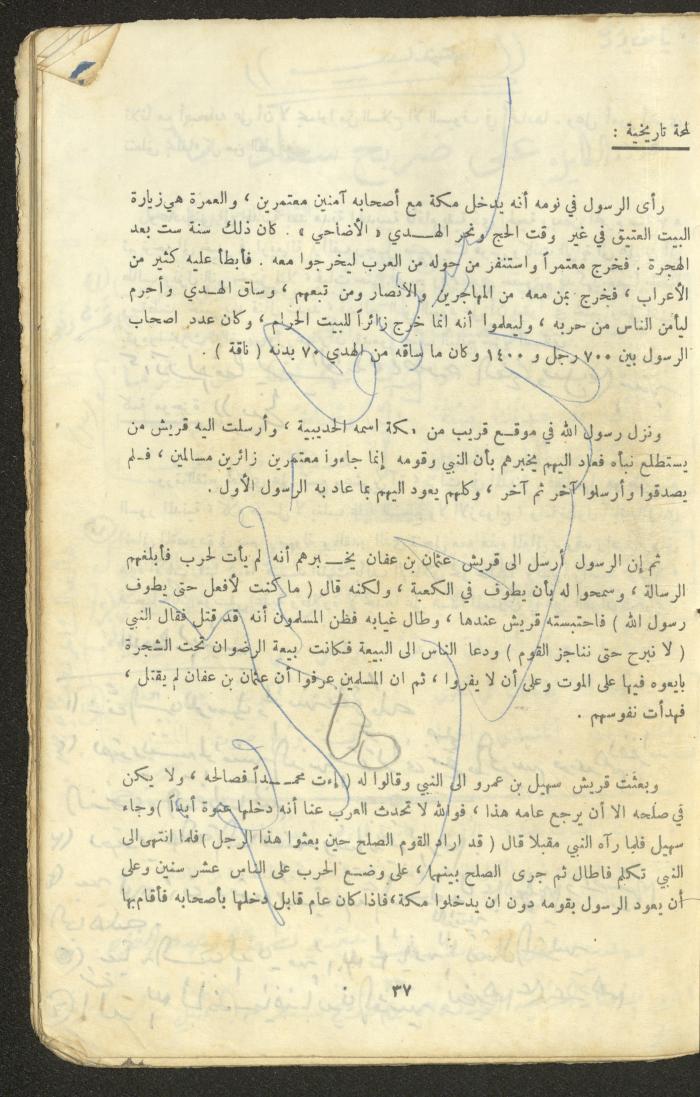 لمحة تاريخية :
رأى الرسول في نومه أنه يدخل مكة مع أصحابه آمنين معتمرين ، والعمرة هي زيارة
البيت العتيق في غير وقت الحج ونحر الهـــدي « الأضاحي » . كان ذلك سنة ست بعد
الهجرة . فخرج معتمراً واستنفز من حوله من العرب ليخرجوا معه . فأبطأ عليه كثير من
الأعراب ، فخرج بمن معه من المهاجرين والأنصار ومن تبعهم ، وساق الهـدي وأحرم
ليأمن الناس من حربه ، وليعلموا أنه انما خرج زائراً للبيت الحرام ، وكان عدد اصحاب
الرسول بين ٧٠٠ رجل و ١٤٠٠ وكان ما ساقه من الهدي ٧٠ بدنه ( ناقة ) .
ونزل رسول الله في موقـع قريب من مكة اسمه الحديبية ، وأرسلت اليه قريش من
يستطلع نبأه فعاد اليهم يخبرهم بأن النبي وقومه إنما جاءوا معتمرين زائرين مسالمين ، فـلم
يصدقوا وأرسلوا آخر ثم آخر ، وكلهم يعود اليهم بما عاد به الرسول الأول .
ثم إن الرسول أرسل الى قريش عثمان بن عفان يخـــبرهم أنه لم يأت لحرب فأبلغهم
الرسالة ، وسمحوا له بأن يطوف في الكعبة ، ولكنه قال ( ما كنت لأفعل حتى يطوف
رسول الله ) فاحتبسته قريش عندها ، وطال غيابه فظن المسلمون أنه قد قتل فقال النبي
( لا نبرح حتى نناجز القوم ) ودعا الناس الى البيعة فكانت بيعة الرضوان تحت الشجرة
بايعوه فيها على الموت وعلى أن لا يفروا ، ثم ان المسلمين عرفوا أن عثمان بن عفان لم يقتل ،
فهدأت نفوسهم .
وبعثت قريش سهيل بن عمرو الى النبي وقالوا له ( إءت محمـــداً فصالحه ، ولا يكن
في صلحه الا أن يرجع عامه هذا ، فوالله لا تحدث العرب عنا أنه دخلها عنوة أبداً ) وجاء
سهيل فلما رآه النبي مقبلا قال ( قد اراد القوم الصلح حين بعثوا هذا الرجل ) فلما انتهى الى
النبي تكلم فاطال ثم جرى الصلح بينهما ، على وضـع الحرب على الناس عشر سنين وعلى
أن يعود الرسول بقومه دون ان يدخلوا مكة ، فاذا كان عام قابل دخلها بأصحابه فأقام بها
٣٧